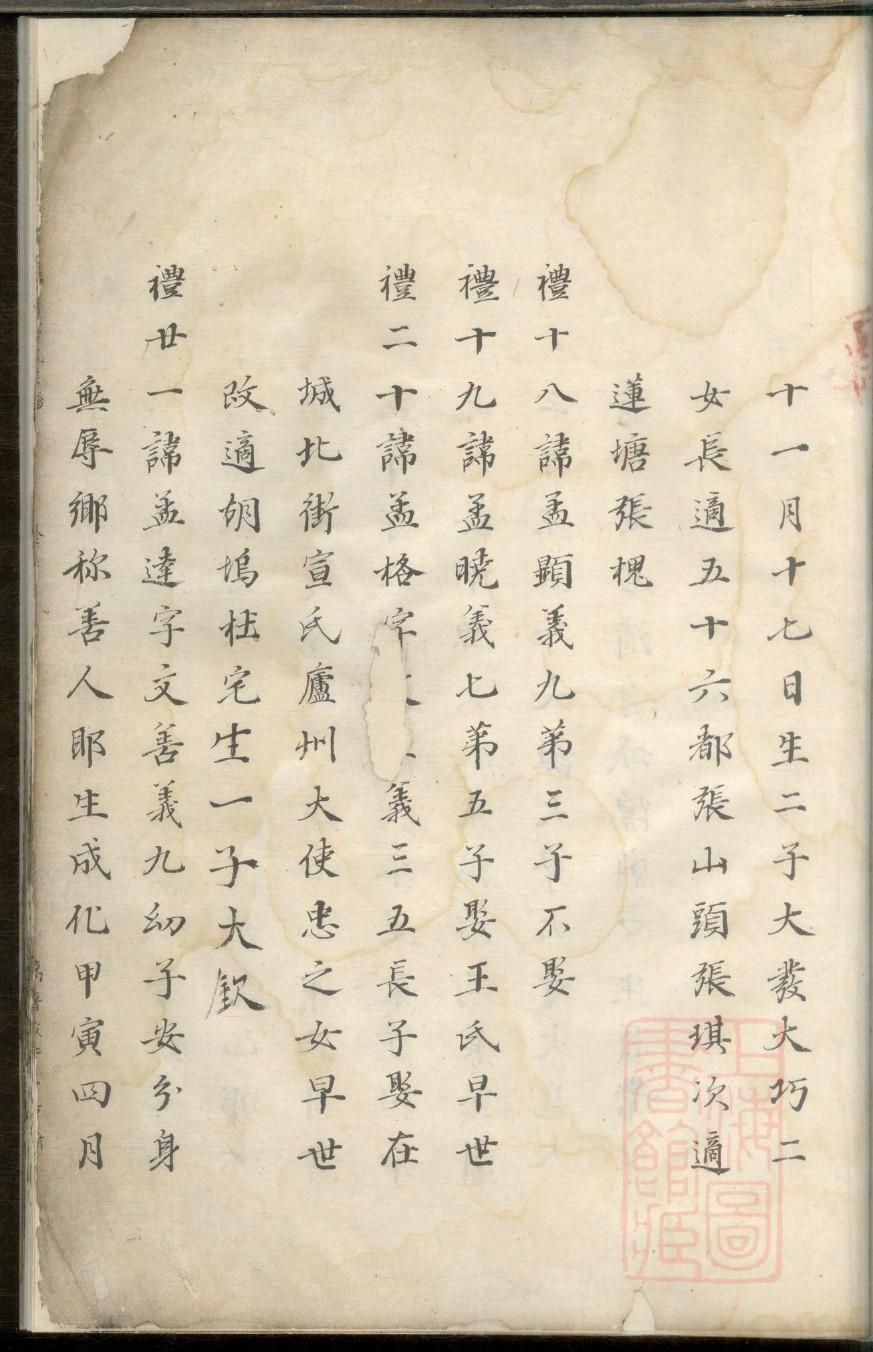 十一月十七日生二子大發大巧二
女長適五十六都張山頭張琪次適
蓮塘張槐
禮十八諱孟顯義九第三子不娶
禮十九諱孟曉義七第五子娶王氏早世
禮二十諱孟格字義三五長子娶在
城北街宣氏廬州大使忠之女早世
改適胡塢杜宅生一子大欽
禮廿一諱孟達字文善義九幼子安分身
無辱鄉称善人耶生成化甲寅四月
上海圖書館藏